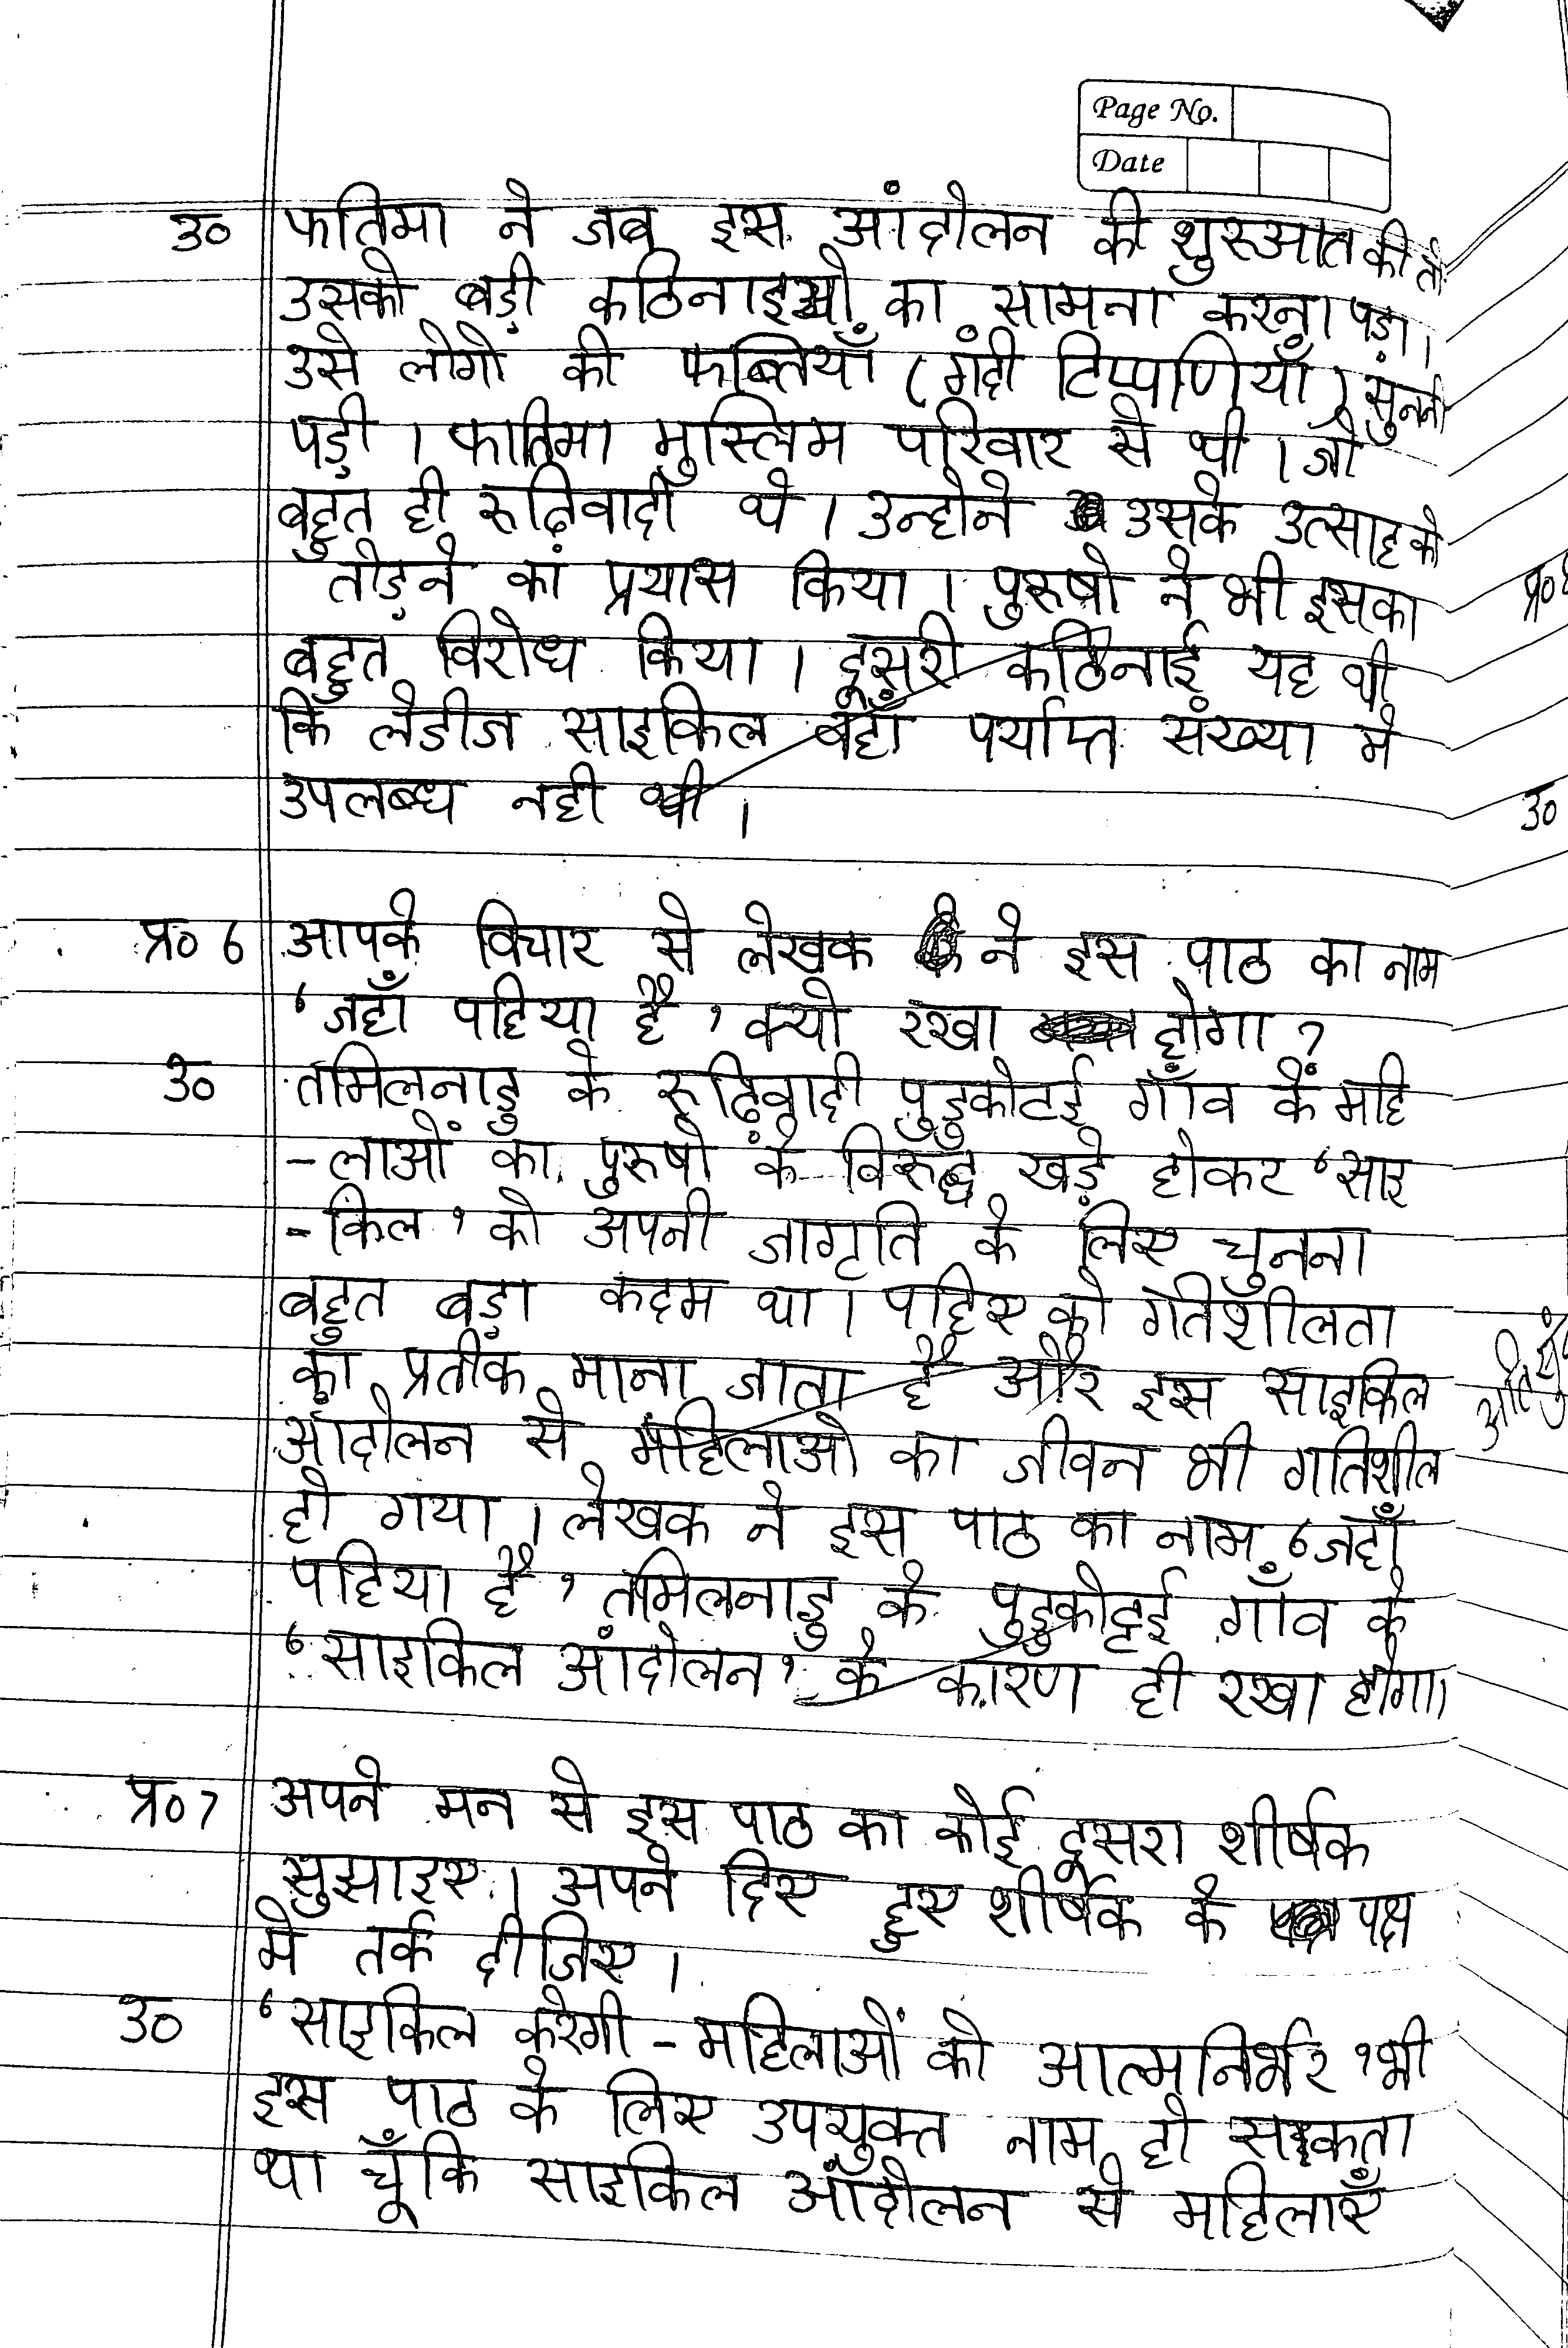 Page No.
Date
उ० फतिमा ने जब इस आंदोलन की शुरुआत की तो
उसको बड़ी कठिनाइयो का सामना करना पड़ा।
उसे लोगो की फब्तियाँ (गंदी टिप्पणियाँ) सुननी
पड़ी। फातिमा मुस्लिम परिवार से थी। जो
बहुत ही रूढिवादी थे। उन्होने उसके उत्साह को
तोड़ने का प्रयास किया। पुरूषो ने भी इसका
बहुत विरोध किया। दूसरी कठिनाई यह थी
कि लेडीज साइकिल वहाँ पर्याप्त संख्या मे
उपलब्ध नही थी।
प्र० 6 आपके विचार से लेखक ने इस पाठ का नाम
'जहाँ पहिया है' क्यो रखा होगा?
उ० तमिलनाडु के रूढ़िवादी पुडुकोटई गाँव कें महि
-लाओं का पुरूषो के विरूद्ध खड़े होकर 'साइ
-किल' को अपनी जागृति के लिए चुनना
बहुत बड़ा कदम था। पहिए को गतिशीलता
का प्रतीक माना जाता है और इस साइकिल
आंदोलन से महिलाओ का जीवन भी गतिशील
हो गया। लेखक ने इस पाठ का नाम 'जहाँ
पहिया है' तमिलनाडु के पुडुकोट्टई गाँव के
'साइकिल आंदोलन' के कारण ही रखा होगा।
प्र० 7 अपने मन से इस पाठ का कोई दूसरा शीर्षक
सुझाइए। अपने दिए हुए शीर्षक के पक्ष
मे तर्क दीजिए।
उ० 'साइकिल करेगी - महिलाओं को आत्मनिर्भर' भी
इस पाठ के लिए उपयुक्त नाम हो सकता
था चूँकि साइकिल आँदोलन से महिलाएँ
प्र०
उ०